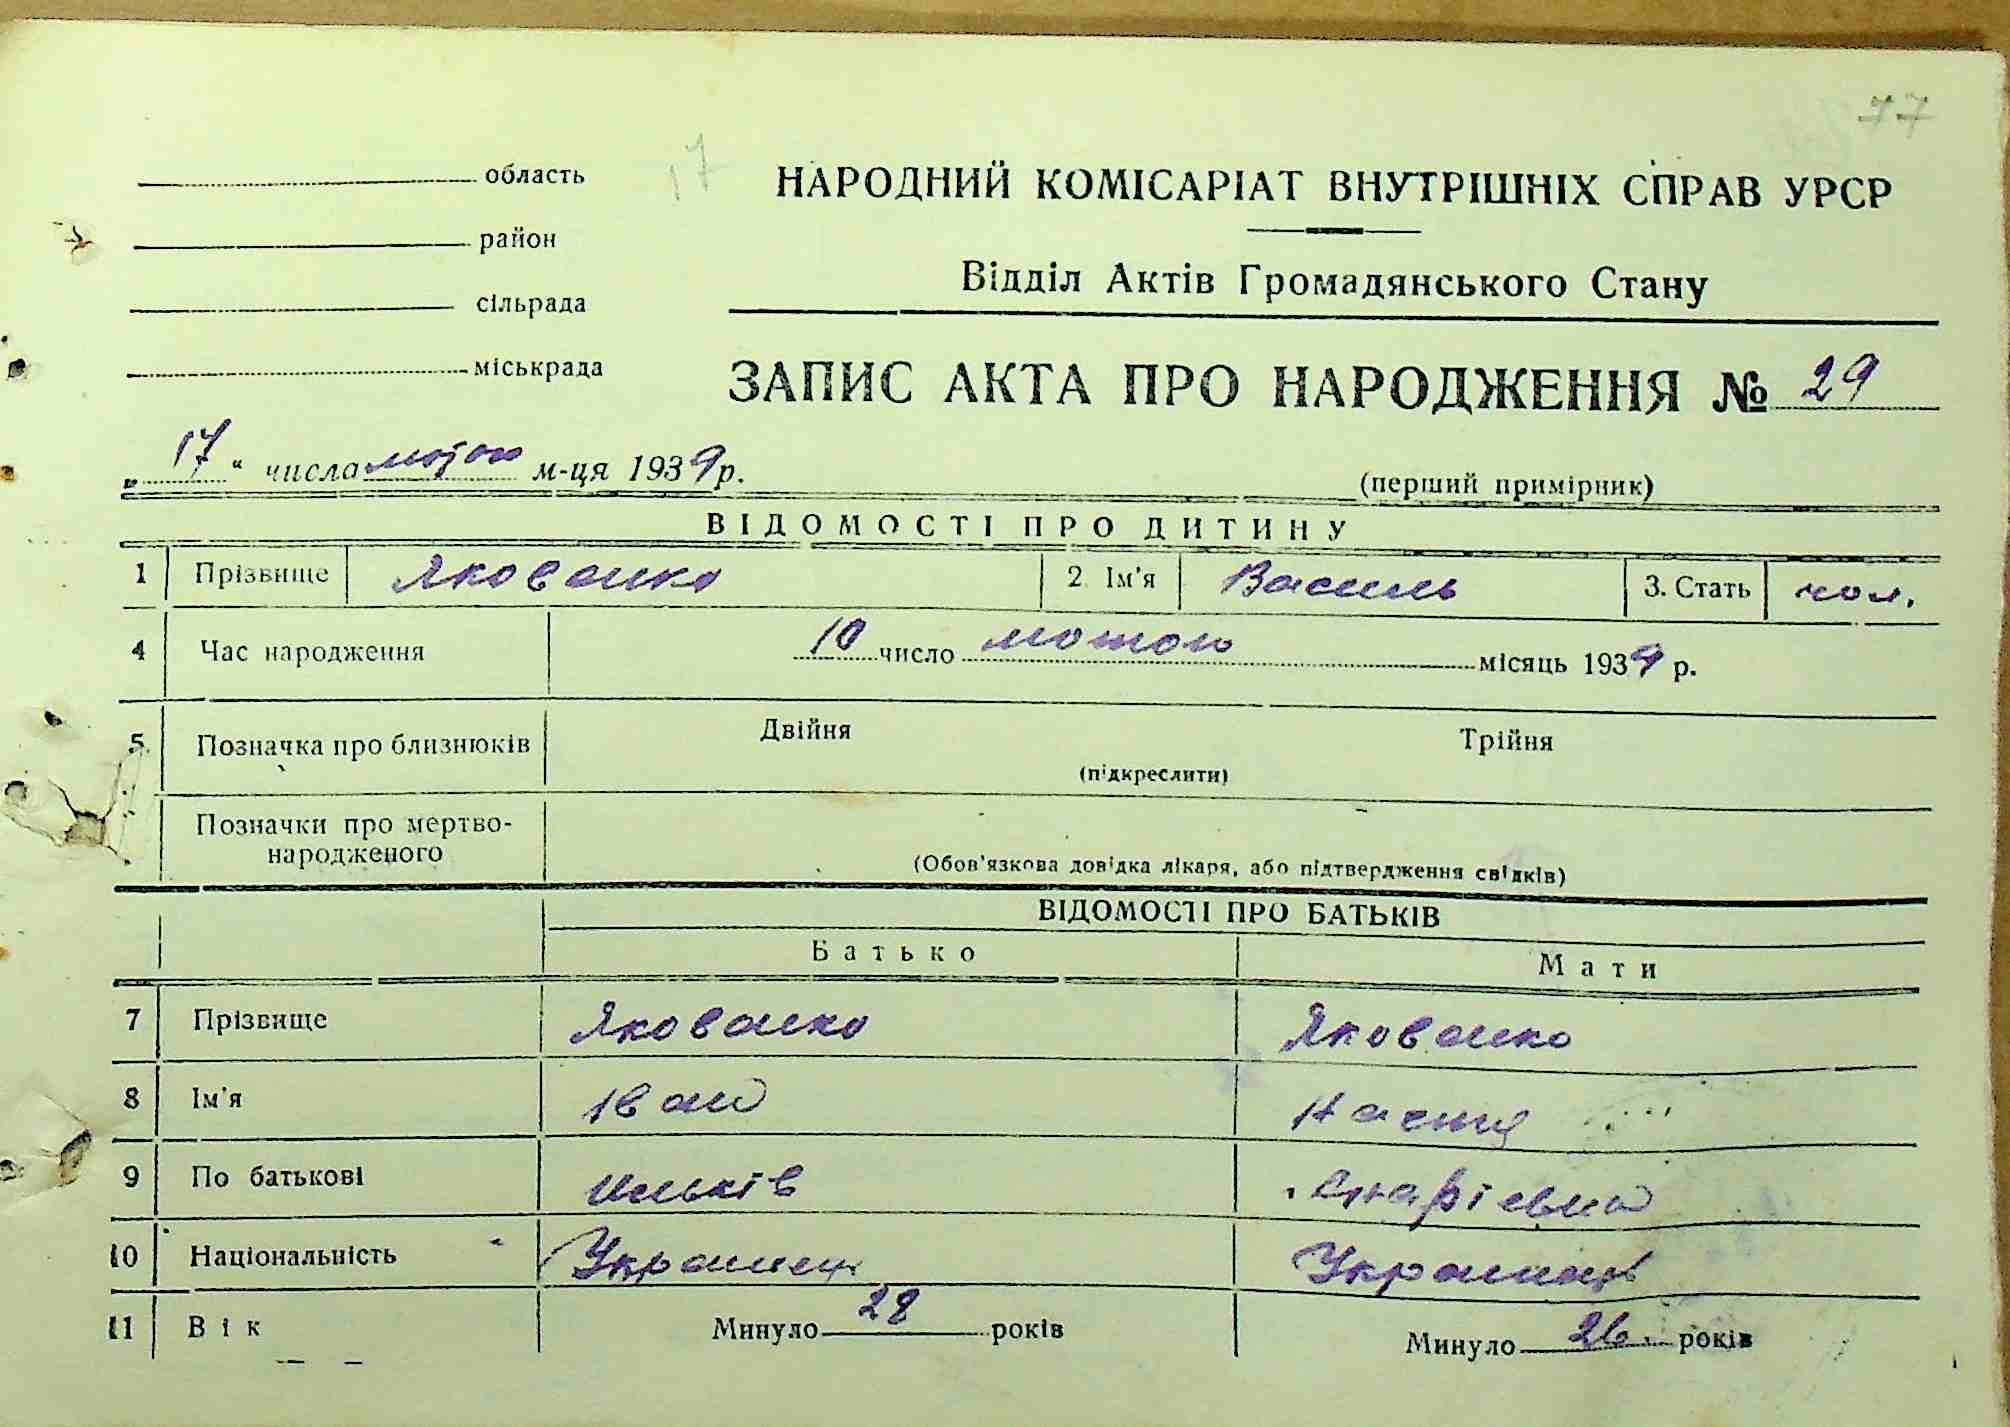 77
область
17
НАРОДНИЙ КОМІСАРІАТ ВНУТРІШНІХ СПРАВ УРСР
район
Відділ Актів Громадянського Стану
сільрада
міськрада
ЗАПИС АКТА ПРО НАРОДЖЕННЯ № 29
„17“ числа лютого м-ця 1939 р.
(перший примірник)
ВІДОМОСТІ ПРО ДИТИНУ
1 Прізвище Яковенко 2. Ім'я Василь 3. Стать чол.
4 Час народження 10 число лютого місяць 1939 р.
5. Позначка про близнюків Двійня Трійня
(підкреслити)
Позначки про мертво-
народженого
(Обов'язкова довідка лікаря, або підтвердження свідків)
ВІДОМОСТІ ПРО БАТЬКІВ
Батько Мати
7 Прізвище Яковенко Яковенко
8 Ім'я Іван Настя
9 По батькові Ильків
10 Національність Українец Українець
11 Вік Минуло 28 років Минуло 26 років